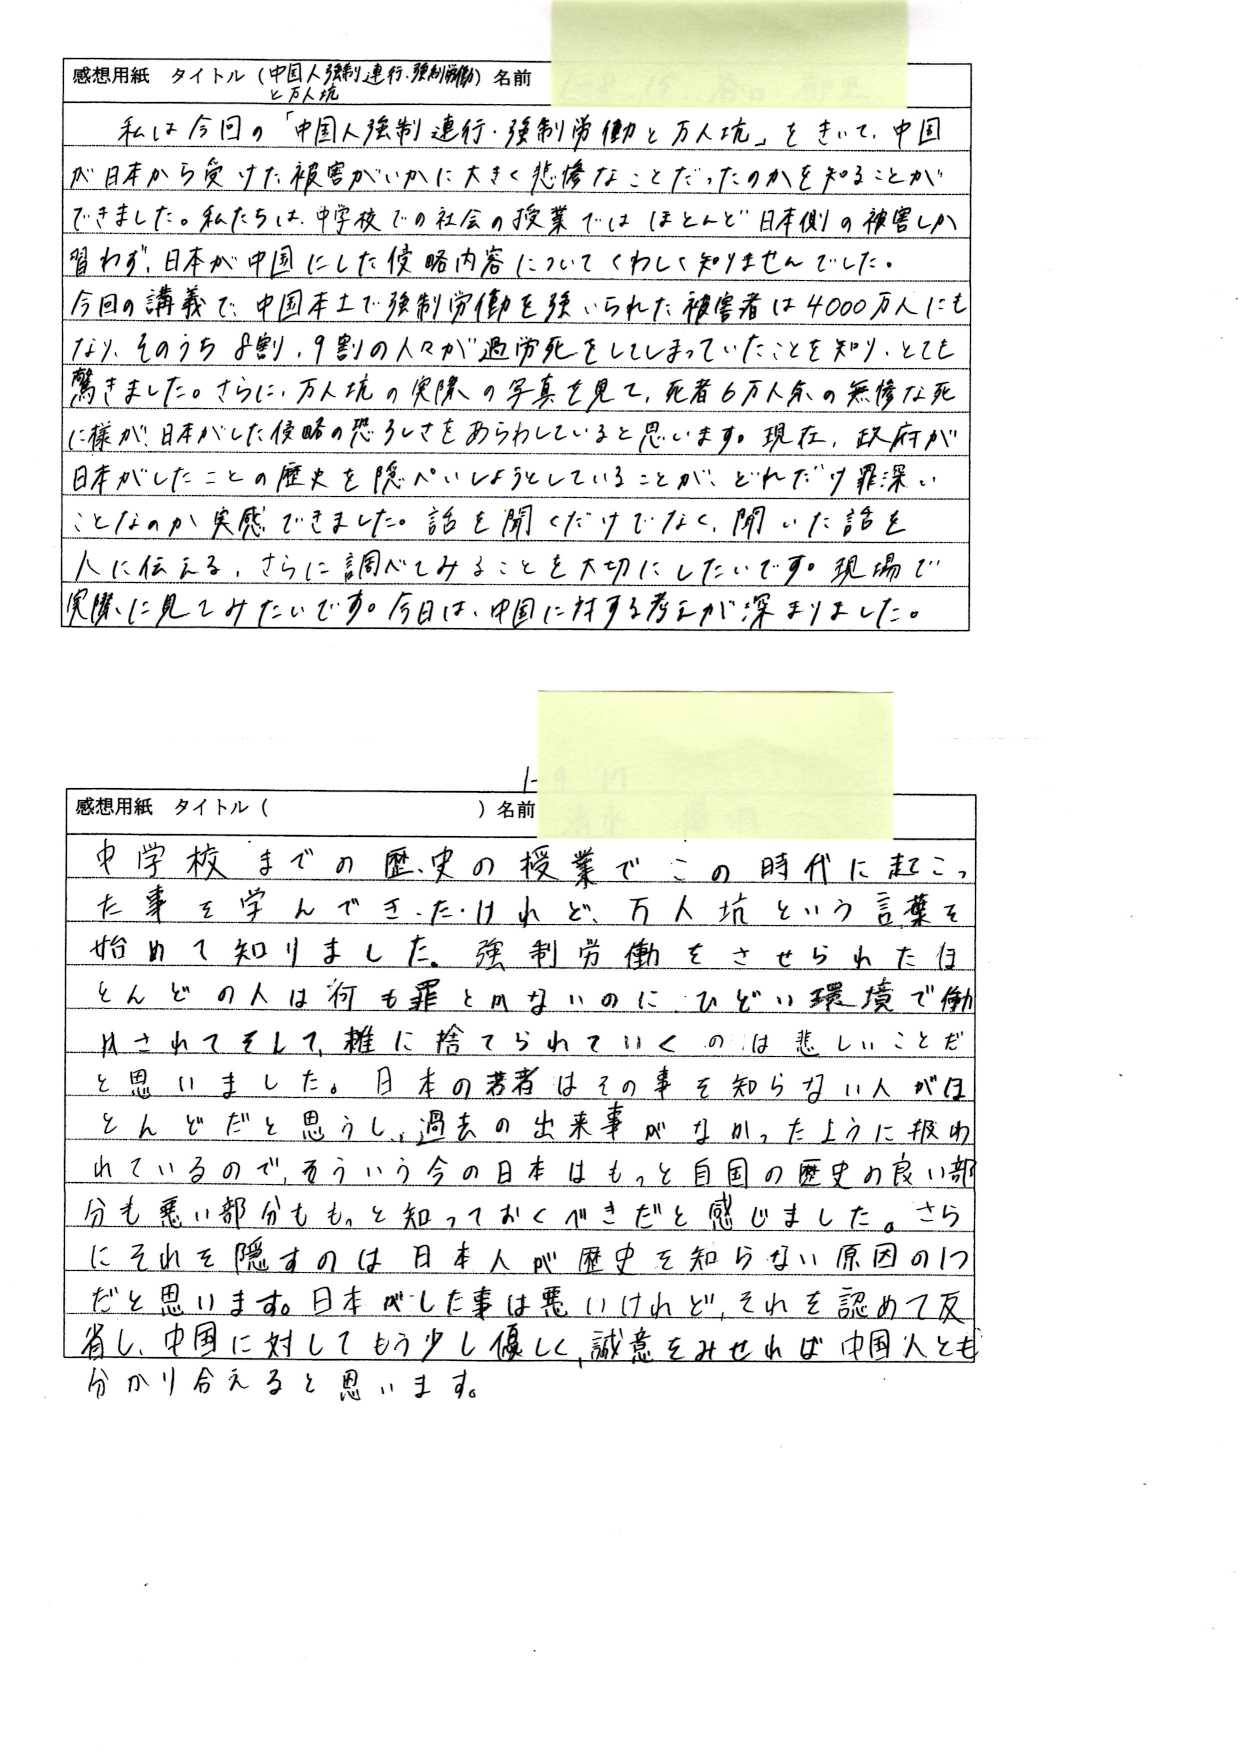 感想用紙 タイトル（中国人強制連行・強制労働と万人坑）名前
私は今回の「中国人強制連行・強制労働と万人坑」をきいて、中国
が日本から受けた被害がいかに大きく悲惨なことだったのかを知ることが
できました。私たちは、中学校での社会の授業ではほとんど日本側の被害しか
習わず、日本が中国にした侵略内容についてくわしく知りませんでした。
今回の講義で、中国本土で強制労働を強いられた被害者は4000万人にも
なり、そのうち8割、9割の人々が過労死をしてしまっていたことを知り、とても
驚きました。さらに、万人坑の実際の写真を見て、死者6万人余の無惨な死
に様が、日本がした侵略の恐ろしさをあらわしていると思います。現在、政府が
日本がしたことの歴史を隠ぺいしようとしていることが、どれだけ罪深い
ことなのか実感できました。話を聞くだけでなく、聞いた話を
人に伝える、さらに調べてみることを大切にしたいです。現場で
実際に見てみたいです。今日は、中国に対する考えが深まりました。
感想用紙 タイトル（ ）名前
中学校までの歴史の授業でこの時代に起こっ
た事を学んできたけれど、万人坑という言葉を
始めて知りました。強制労働をさせられたほ
とんどの人は何も罪とかないのに、ひどい環境で働
かされてそして、雑に捨てられていくのは悲しいことだ
と思いました。日本の若者はその事を知らない人がほ
とんどだと思うし、過去の出来事がなかったように扱わ
れているので、そういう今の日本はもっと自国の歴史の良い部
分も悪い部分ももっと知っておくべきだと感じました。さら
にそれを隠すのは日本人が歴史を知らない原因の1つ
だと思います。日本がした事は悪いけれど、それを認めて反
省し、中国に対してもう少し優しく、誠意をみせれば中国人とも
分かり合えると思います。